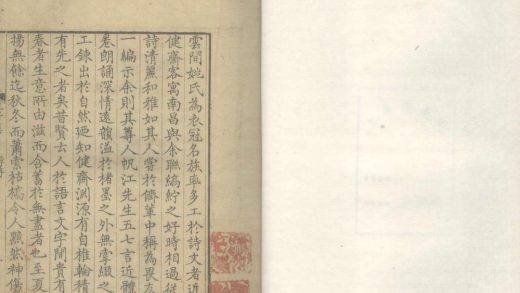 雲間姚氏為衣冠名族率多工於詩文者近
健齋客寓南昌與余聯縞紵之好時相過從
詩清麗和雅如其人嘗於儕輩中稱為畏友
一編示余則其尊人帆江先生五七言近體
卷朗誦深情遠韻溢於楮墨之外無雲綴之
工鍊出於自然廼知健齋淵源有自椎輪積
有先之者矣昔賢去人於語言文字間貴有
春者生意所由滋而含蓄於無盡者也至夏
揚無餘迄秋冬而蕭索枯槁令人黯然神傷